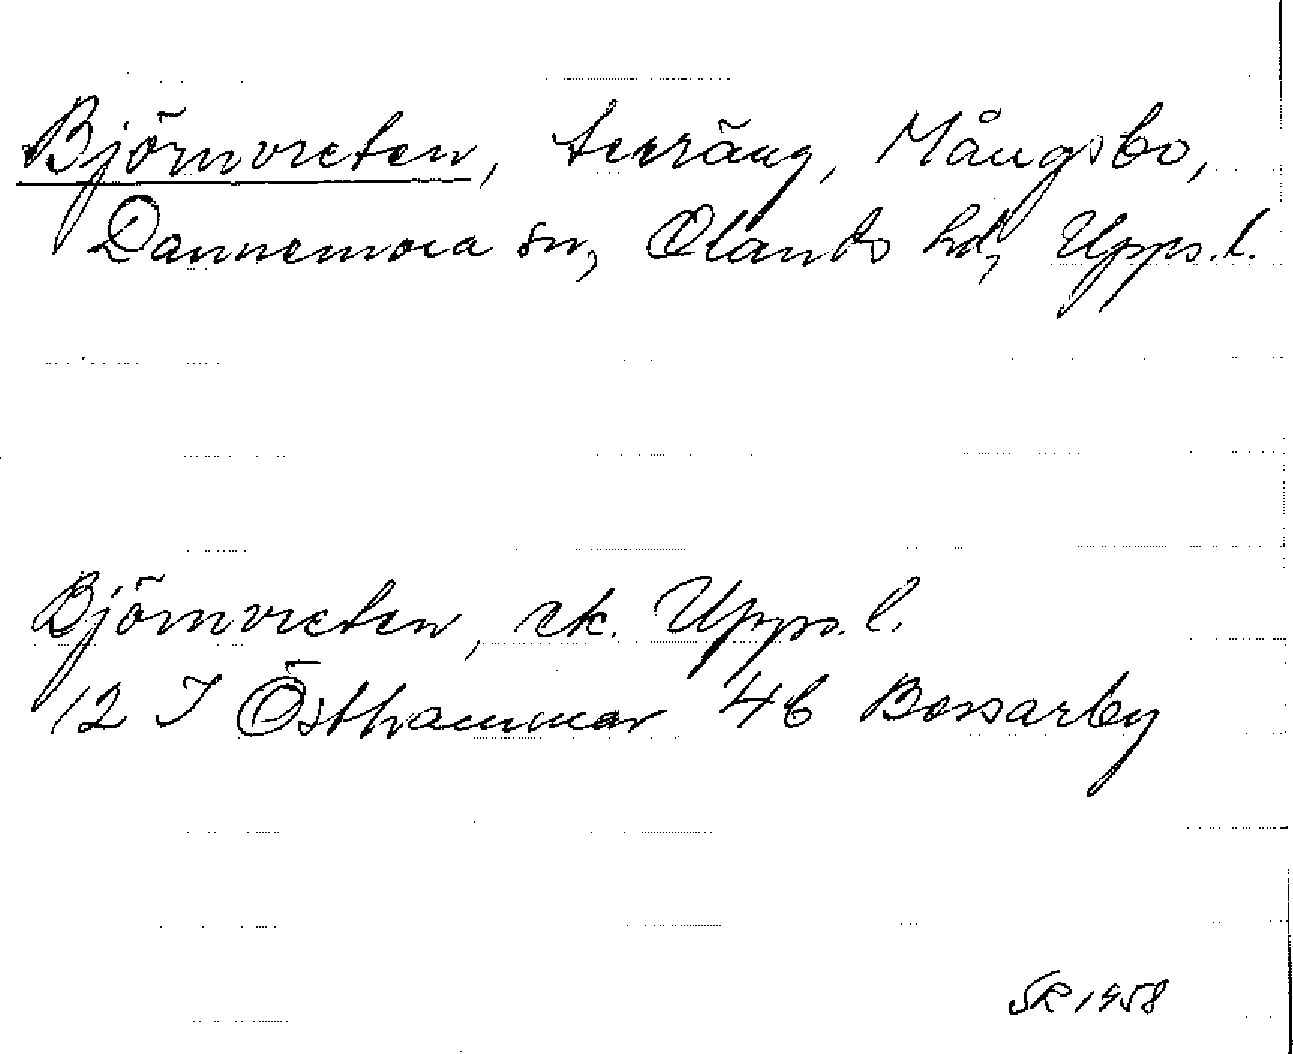 Björnvreten, terräng, Mångsbo,
Dannemora sn, Olands hd, Upps.l.
Björnvreten, ek. Upps.l.
12 I Östhammar 4b Bossarby
SR 1958